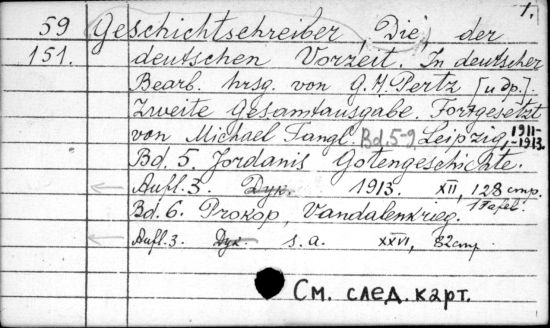 1.
59 Geschichtschreiber, Die, der
151. deutschen Vorzeit. In deutscher
Bearb. hrsg. von G. H. Pertz [u др.].
Zweite Gesamtausgabe. Fortgesetzt
von Michael Tangl. Bd. 5-9. Leipzig, 1911-
-1913.
Bd. 5. Jordanis Gotengeschichte.
Aufl. 3. Dyk. 1913. XII, 128 стр.
1 Tafel.
Bd. 6. Prokop, Vandalenkrieg.
Aufl. 3. Dyk. s. a. XXVI, 82 стр.
См. след. карт.